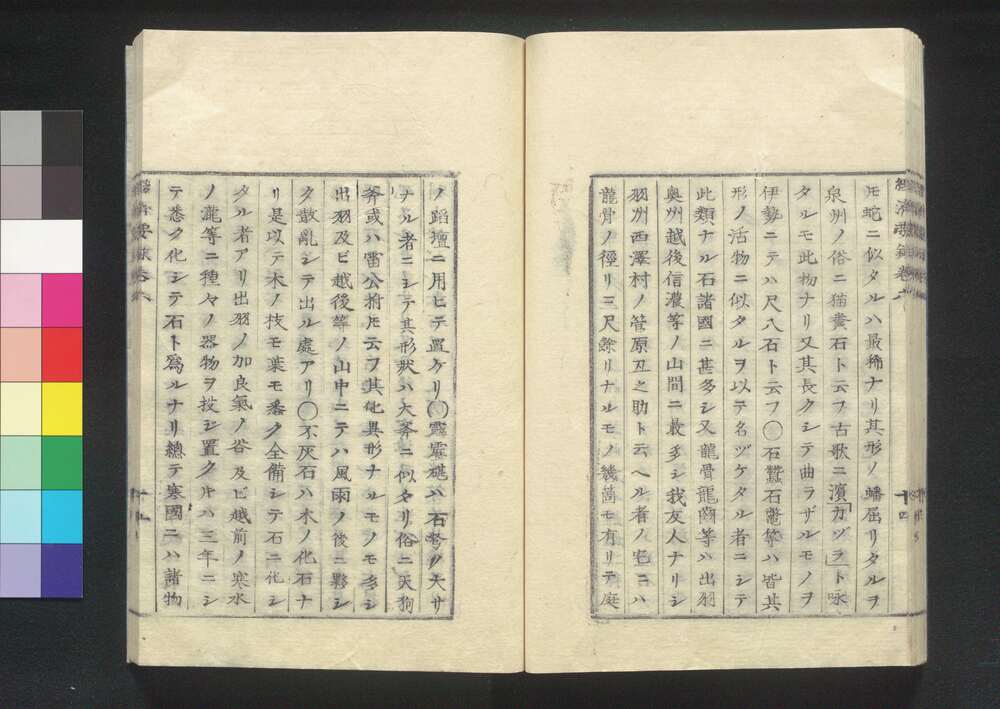 經濟要録卷六
モ蛇ニ似タルハ最稀ナリ其形ノ蟠屈リタルヲ
泉州ノ俗ニ猫糞石ト云フ古歌ニ濱「カヅラ」ト咏
タルモ此物ナリ又其長クシテ曲ラザルモノヲ
伊勢ニテハ尺八石ト云フ〇石蠶石鼈等ハ皆其
形ノ活物ニ似タルヲ以テ名ヅケタル者ニシテ
此類ナル石諸國ニ甚多シ又龍骨龍齒等ハ出羽
奥州越後信濃等ノ山間ニ最多シ我友人ナリシ
羽州西澤村ノ菅原亙之助ト云ヘル者ノ宅ニハ
龍骨ノ徑リ三尺餘リナルモノ幾箇モ有リテ庭
十四
ノ蹈壇ニ用ヒテ置ケリ〇霹靂碪ハ石ノ大サ
ナル者ニシテ其形狀ハ大斧ニ似タリ俗ニ天狗
斧或ハ雷公揃トモ云フ其他異形ナルモノモ多シ
出羽及ビ越後等ノ山中ニテハ風雨ノ後ニ夥シ
ク散亂シテ出ル處アリ〇不灰石ハ木ノ化石ナ
リ是以テ木ノ枝モ葉モ悉ク全備シテ石ニ化シ
タル者アリ出羽ノ加良氣ノ谷及ビ越前ノ寒水
ノ瀧等ニ種々ノ器物ヲ投シ置クトキハ三年ニシ
テ悉ク化シテ石ト爲ルナリ總テ寒國ニハ諸物
經濟要録卷六
十五